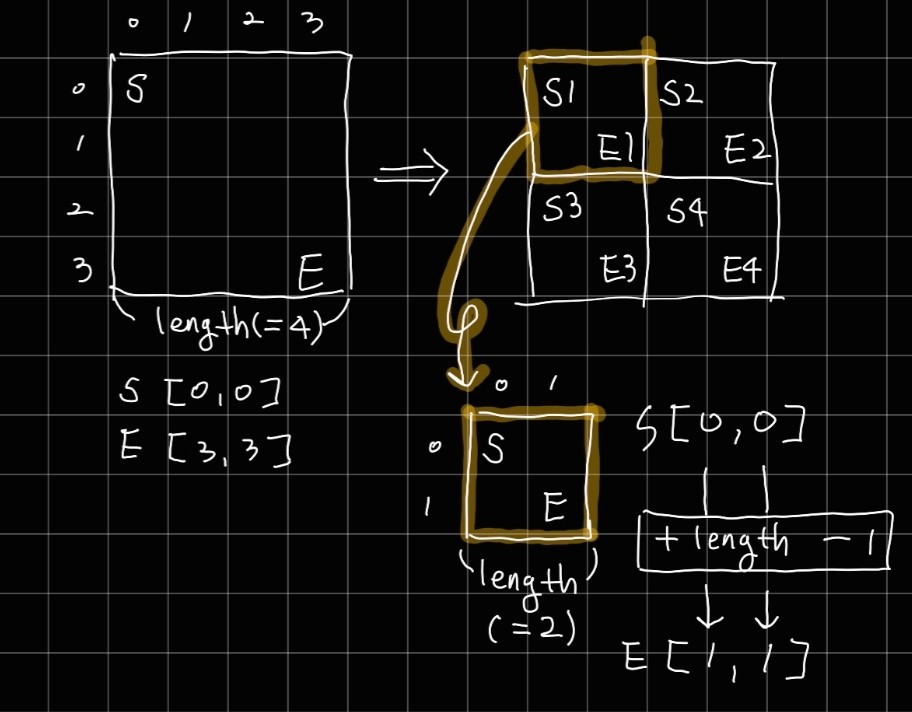 0 1 2 3
0 S
1
2
3 E
length(=4)
S [0,0]
E [3,3]
⇒
S1 S2
E1 E2
S3 S4
E3 E4
0 1
0 S
1 E
length
(=2)
S[0,0]
+ length - 1
E [1,1]